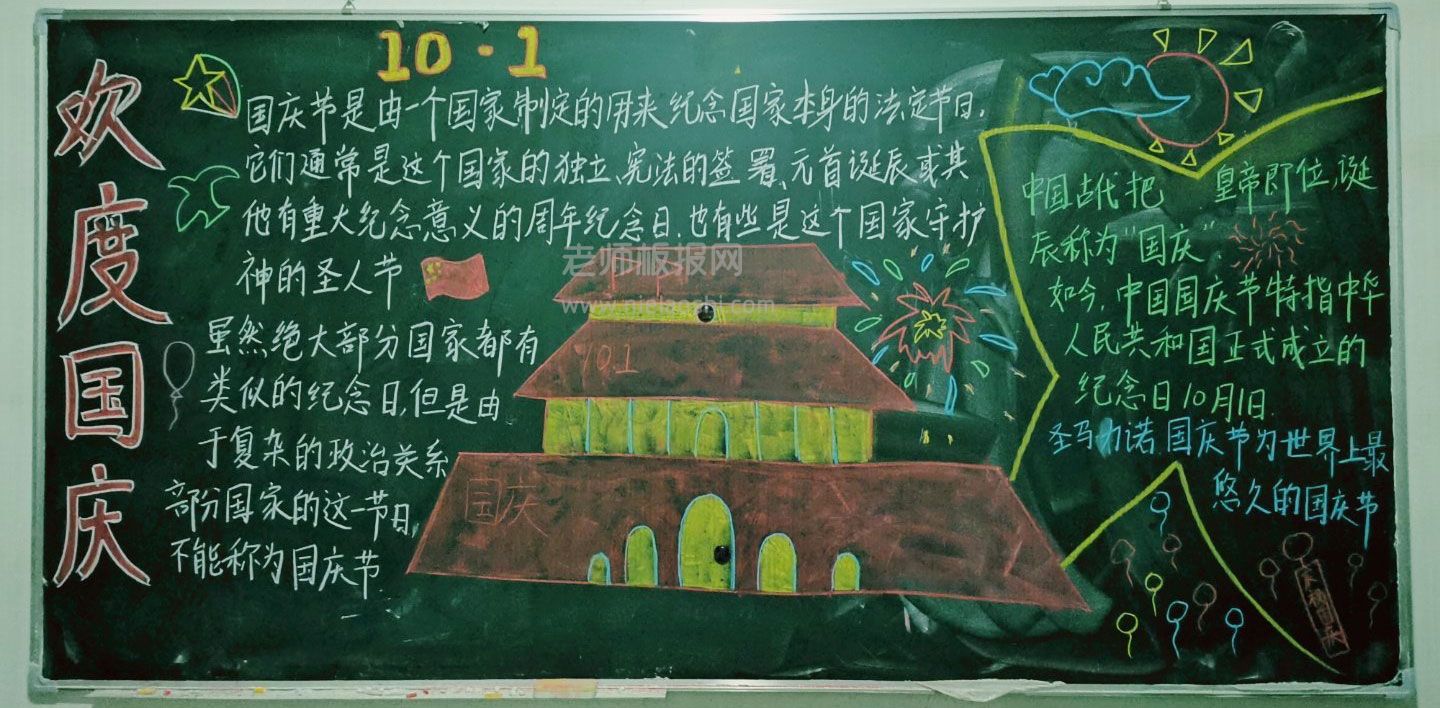 欢度国庆
10·1
国庆节是由一个国家制定的用来纪念国家本身的法定节日,
它们通常是这个国家的独立、宪法的签署、元首诞辰或其
他有重大纪念意义的周年纪念日.也有些是这个国家守护
神的圣人节
虽然绝大部分国家都有
类似的纪念日,但是由
于复杂的政治关系
部分国家的这一节日,
不能称为国庆节.
老师板报网
101
国庆
中国古代把 皇帝即位,诞
辰称为"国庆".
如今,中国国庆节特指中华
人民共和国正式成立的
纪念日10月1日.
圣马力诺.国庆节为世界上最
悠久的国庆节